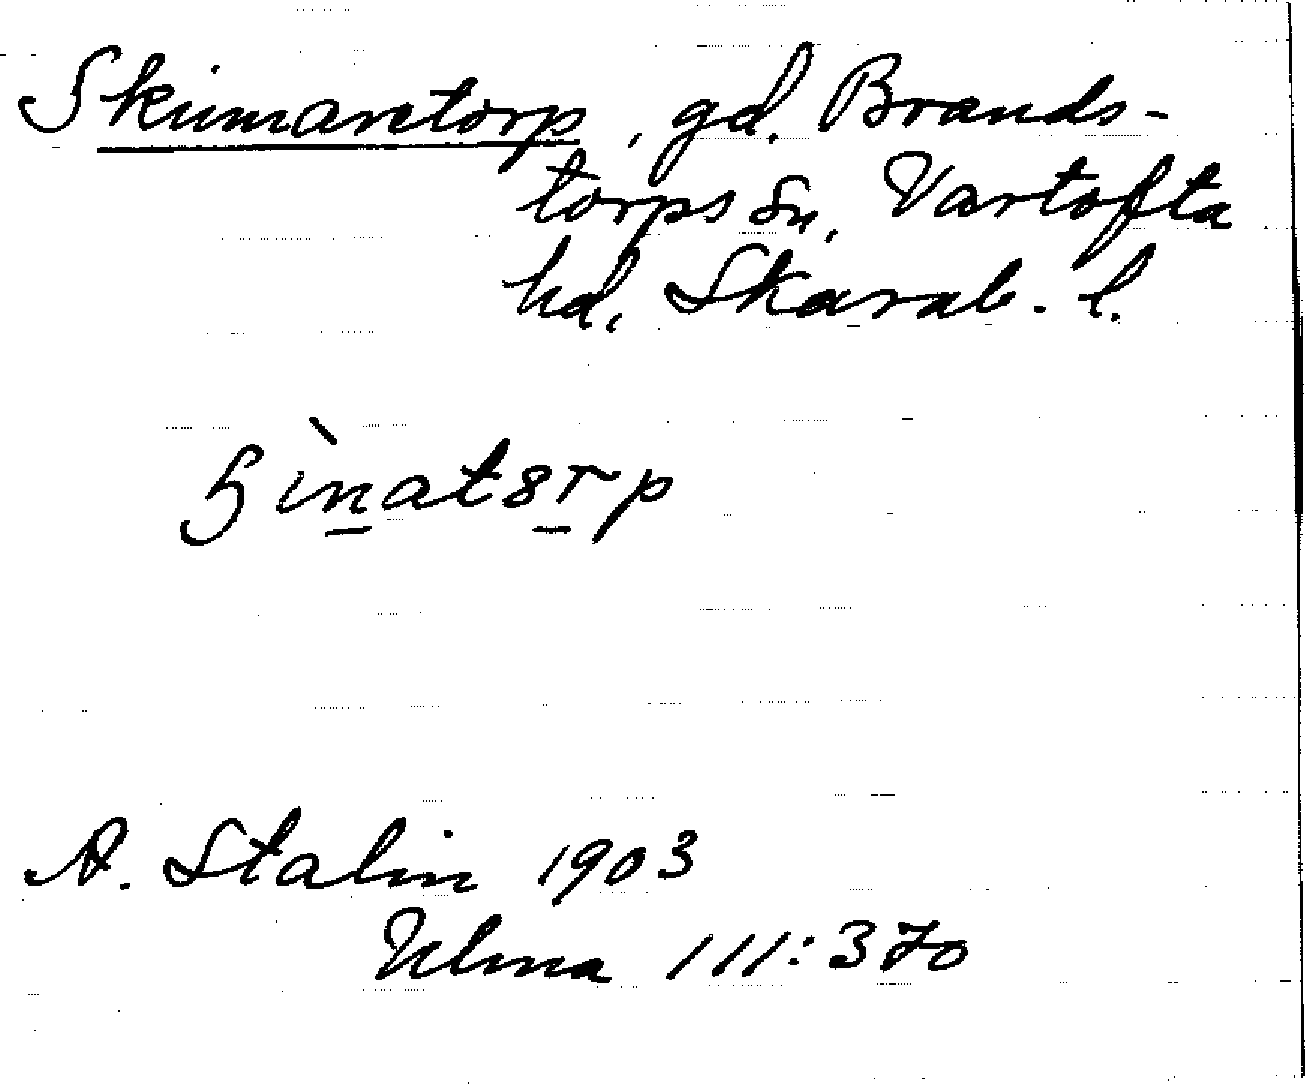 Skinnaretorp, gd. Brands-
torps sn, Vartofta
hd, Skarab. l.
ɧìn̲at8r̲p
A. Stalin 1903
Ulma 111:370